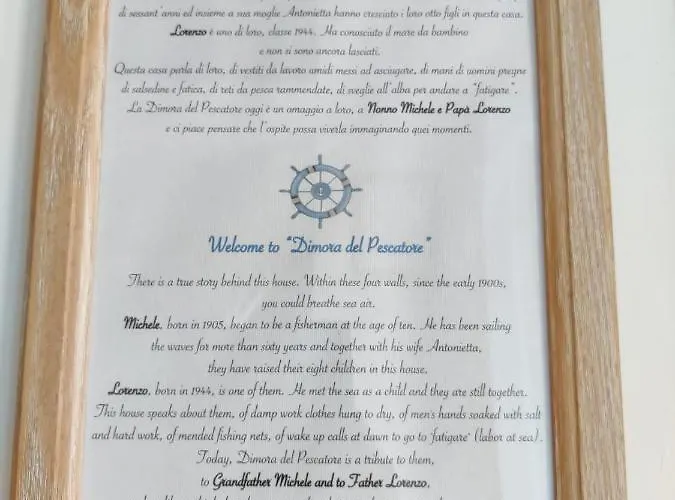 di sessant'anni ed insieme a sua moglie Antonietta hanno cresciuto i loro otto figli in questa casa.
Lorenzo è uno di loro, classe 1944. Ha conosciuto il mare da bambino
e non si sono ancora lasciati.
Questa casa parla di loro, di vestiti da lavoro umidi messi ad asciugare, di mani di uomini pregne
di salsedine e fatica, di reti da pesca rammendate, di sveglie all'alba per andare a "fatigare".
La Dimora del Pescatore oggi è un omaggio a loro, a Nonno Michele e Papà Lorenzo
e ci piace pensare che l'ospite possa viverla immaginando quei momenti.
Welcome to "Dimora del Pescatore"
There is a true story behind this house. Within these four walls, since the early 1900s,
you could breathe sea air.
Michele, born in 1905, began to be a fisherman at the age of ten. He has been sailing
the waves for more than sixty years and together with his wife Antonietta,
they have raised their eight children in this house.
Lorenzo, born in 1944, is one of them. He met the sea as a child and they are still together.
This house speaks about them, of damp work clothes hung to dry, of men's hands soaked with salt
and hard work, of mended fishing nets, of wake up calls at dawn to go to "fatigare" (labor at sea).
Today, Dimora del Pescatore is a tribute to them,
to Grandfather Michele and to Father Lorenzo,